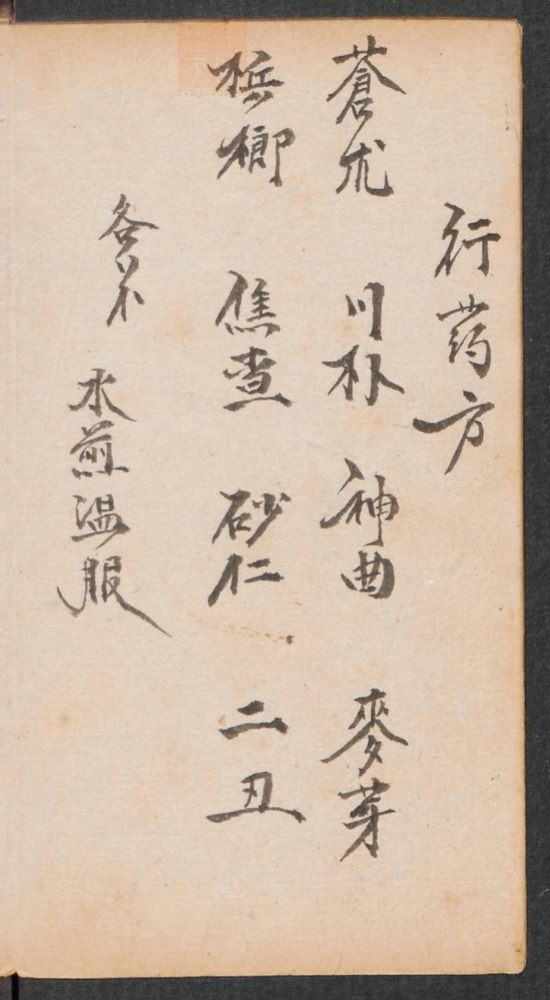 行药方
蒼朮 川朴 神曲 麥芽
梹榔 焦查 砂仁 二丑
各
水煎温服